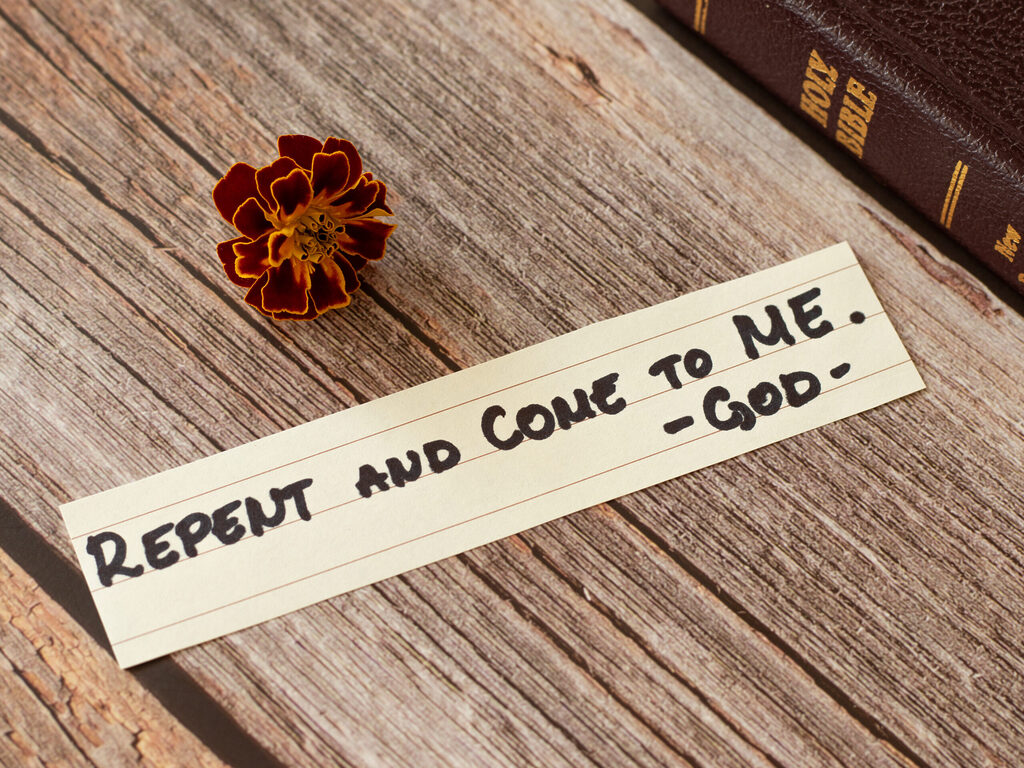 HOLY
BIBLE
New
REPENT AND COME TO ME.
-GOD-